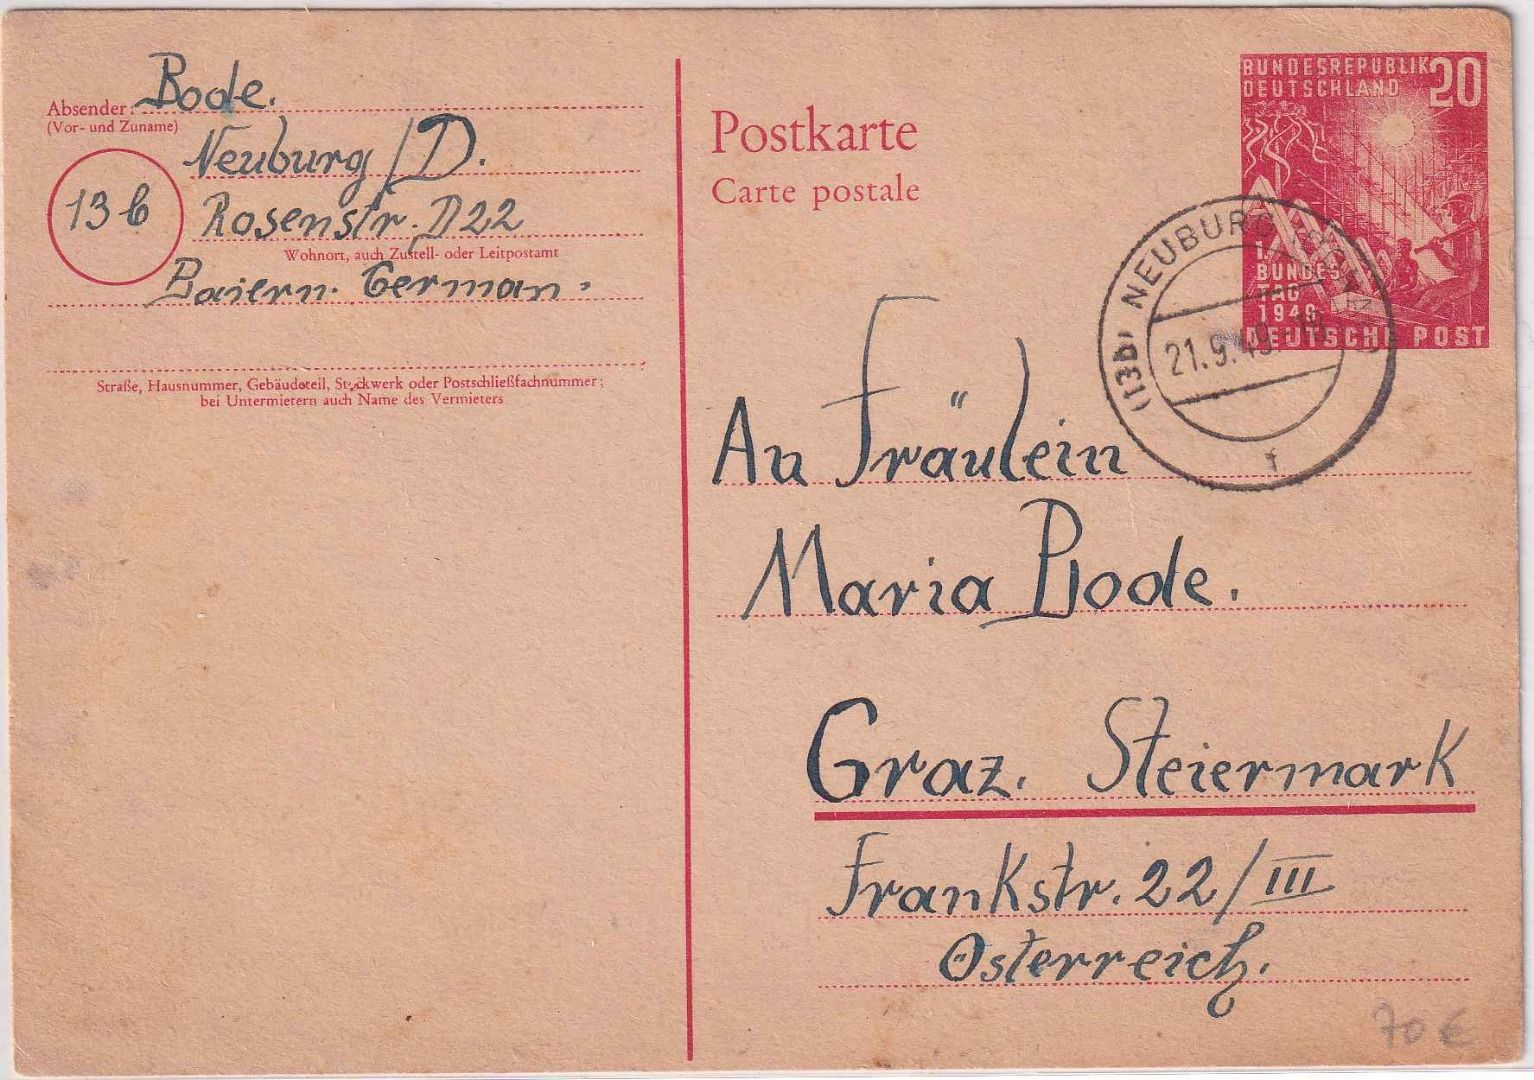 Absender: Bode.
(Vor- und Zuname)
Neuburg/D.
13b
Rosenstr. D22
Wohnort, auch Zustell- oder Leitpostamt
Baiern. German.
Straße, Hausnummer, Gebäudeteil, Stockwerk oder Postschließfachnummer;
bei Untermietern auch Name des Vermieters
Postkarte
Carte postale
BUNDESREPUBLIK 20
DEUTSCHLAND
1.
BUNDES
TAG
1949
DEUTSCHE POST
(13b) NEUBURG (DONAU)
21.9.49
f
An Fräulein
Maria Bode.
Graz. Steiermark
Frankstr. 22/III
Österreich.
70 €